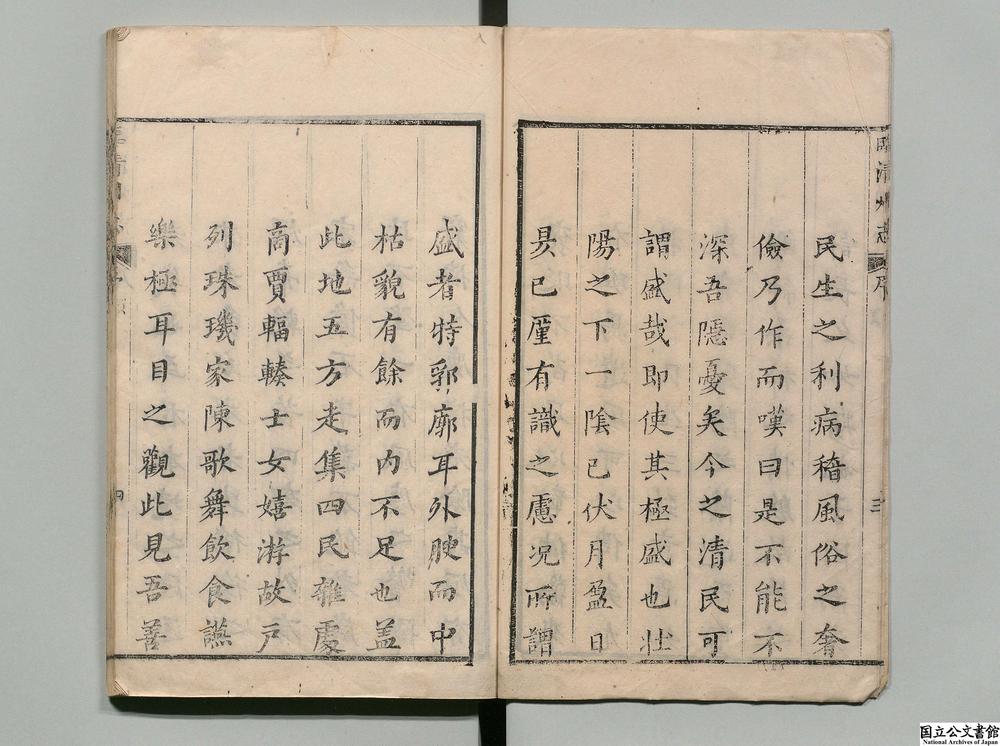 臨清州志 序 三
民生之利病稽風俗之奢
儉乃作而嘆曰是不能不
深吾隱憂矣今之清民可
謂盛哉即使其極盛也壯
陽之下一陰已伏月盈日
昃已厪有識之慮况所謂
盛者特郛廓耳外腴而中
枯貌有餘而内不足也盖
此地五方走集四民雜處
商賈輻輳士女嬉游故戸
列珠璣家陳歌舞飲食讌
樂極耳目之觀此見吾善
清 四
国立公文書館
National Archives of Japan